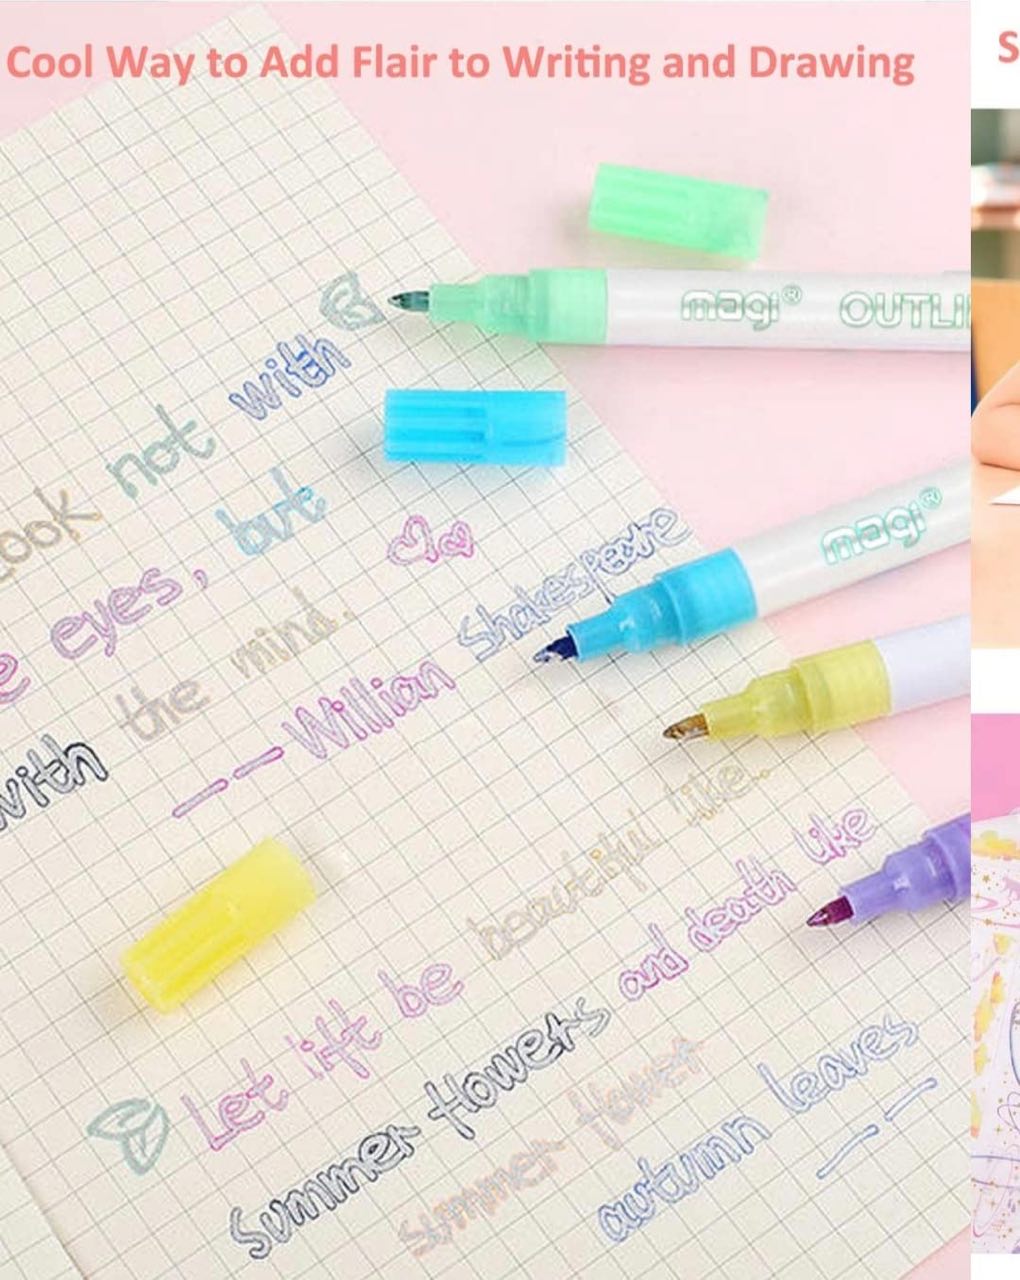 Cool Way to Add Flair to Writing and Drawing
S
magi® OUTLI
look not with
e eyes, but
with the mind.
——Willian Shakespeare
magi®
Let lift be beautiful like..
summer flowers and death like
summer flower
autumn leaves